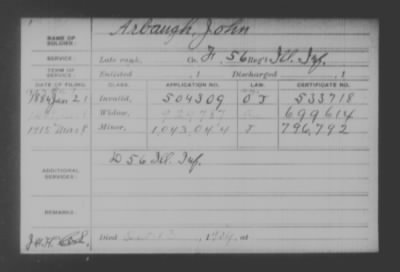 NAME OF SOLDIER: Arbaugh, John
SERVICE: Late rank, Co. F, 56 Reg't Ill. Inf.
TERM OF SERVICE: Enlisted , 1 Discharged , 1
DATE OF FILING. CLASS. APPLICATION NO. LAW. CERTIFICATE NO.
1884 Jan 21 Invalid, 504309 O J 533718
Widow, 699614
1915 Mar 8 Minor, 1,043,044 J 796,792
ADDITIONAL SERVICES: D 56 Ill. Inf.
REMARKS:
Died , 190 , at